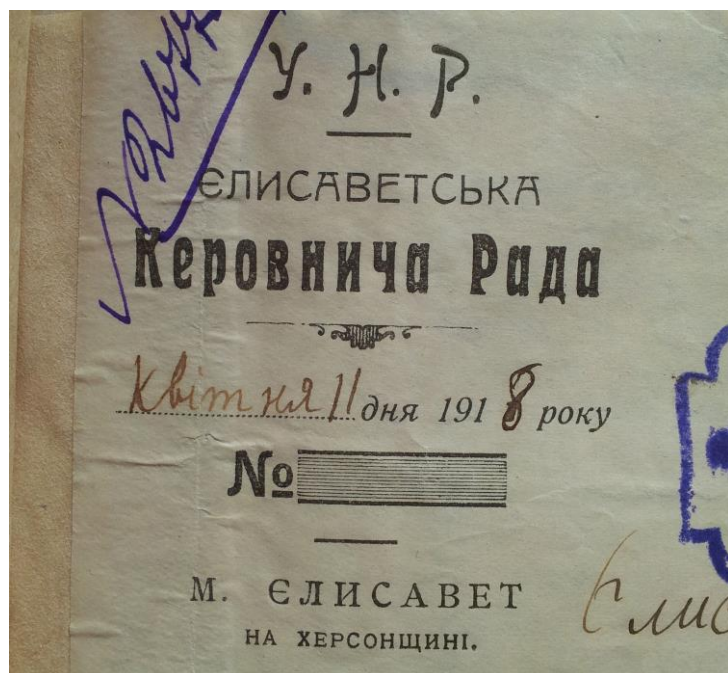 У. Н. Р.
ЄЛИСАВЕТСЬКА
Керовнича Рада
Квітня 11 дня 1918 року
№
М. ЄЛИСАВЕТ
НА ХЕРСОНЩИНІ.